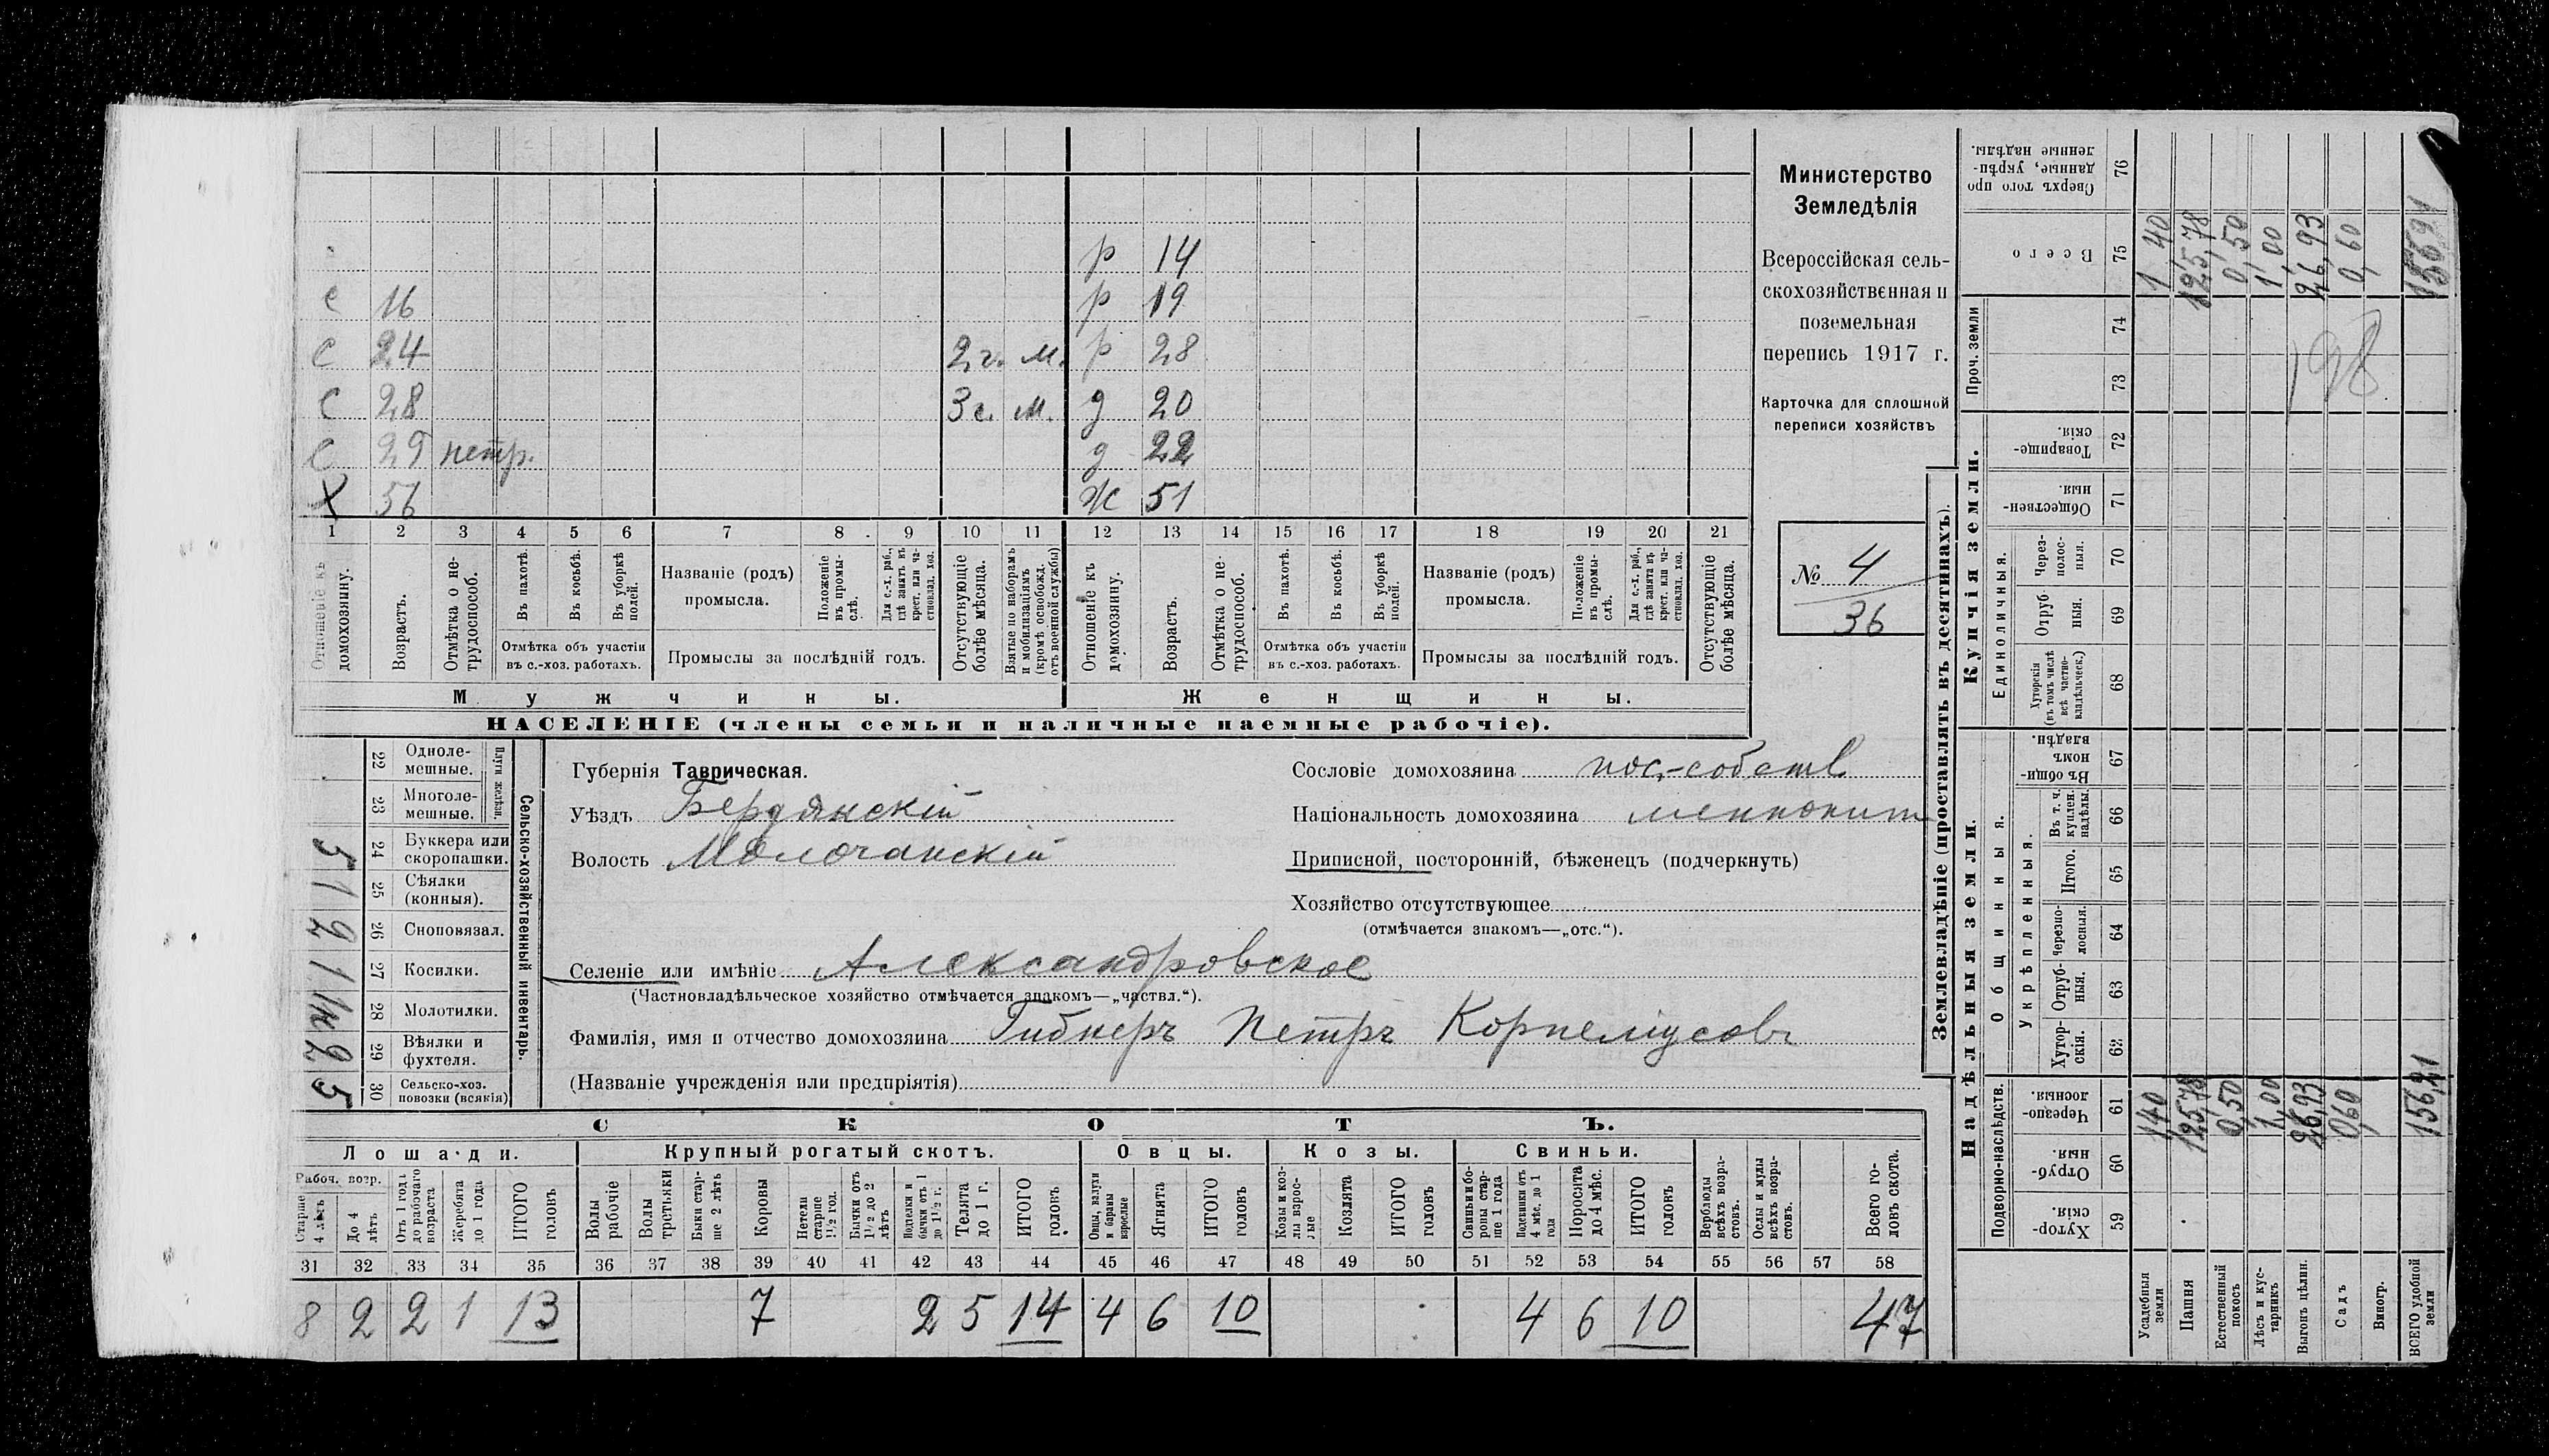 р 14
с 16 р 19
с 24 2 г. м. р 28
с 28 3 г. м. д 20
с 29 нетр. д 22
х 56 ж 51
1 2 3 4 5 6 7 8 9 10 11 12 13 14 15 16 17 18 19 20 21
Отношеніе къ домохозяину.
Возрастъ.
Отмѣтка о не-трудоспособ.
Въ пахотѣ.
Въ косьбѣ.
Въ уборкѣ полей.
Отмѣтка объ участіи въ с.-хоз. работахъ.
Названіе (родъ) промысла.
Положеніе въ промы-слѣ.
Для с.-х. раб., гдѣ занятъ въ крест. или ча-стновлад. хоз.
Промыслы за послѣдній годъ.
Отсутствующіе болѣе мѣсяца.
Взятые по наборамъ и мобилизаціямъ (кромѣ освобожд. отъ военной службы)
Отношеніе къ домохозяину.
Возрастъ.
Отмѣтка о не-трудоспособ.
Въ пахотѣ.
Въ косьбѣ.
Въ уборкѣ полей.
Отмѣтка объ участіи въ с.-хоз. работахъ.
Названіе (родъ) промысла.
Положеніе въ промы-слѣ.
Для с.-х. раб., гдѣ занята въ крест. или ча-стновлад. хоз.
Промыслы за послѣдній годъ.
Отсутствующіе болѣе мѣсяца.
Мужчины. Женщины.
НАСЕЛЕНІЕ (члены семьи и наличные наемные рабочіе).
Министерство
Земледѣлія
Всероссійская сель-
скохозяйственная и
поземельная
перепись 1917 г.
Карточка для сплошной
переписи хозяйствъ
№ 4
36
Сельско-хозяйственный инвентарь.
Плуги желѣзн.
22 Одноле-мешные.
23 Многоле-мешные.
5 24 Буккера или скоропашки.
1 25 Сѣялки (конныя).
2 26 Сноповязал.
1 27 Косилки.
1к 28 Молотилки.
2 29 Вѣялки и фухтеля.
5 30 Сельско-хоз. повозки (всякія)
Губернія Таврическая.
Уѣздъ Бердянскій
Волость Молочанскій
Сословіе домохозяина пос.-собств
Національность домохозяина меннонит
Приписной, посторонній, бѣженецъ (подчеркнуть)
Хозяйство отсутствующее
(отмѣчается знакомъ—„отс.“).
Селеніе или имѣніе Александровское
(Частновладѣльческое хозяйство отмѣчается знакомъ—„частвл.“).
Фамилія, имя и отчество домохозяина Гибнеръ Петръ Корнеліусовъ
(Названіе учрежденія или предпріятія)
СКОТЪ.
Лошади. Крупный рогатый скотъ. Овцы. Козы. Свиньи.
Рабоч. возр.
Старше 4 лѣтъ
До 4 лѣтъ
Отъ 1 года до рабочаго возраста
Жеребята до 1 года
ИТОГО головъ
Волы рабочіе
Волы третьяки
Быки стар-ше 2 лѣтъ
Коровы
Нетели старше 1½ год.
Бычки отъ 1½ до 2 лѣтъ
Подтелки и бычки отъ 1 до 1½ г.
Телята до 1 г.
ИТОГО головъ
Овцы, валухи и бараны взрослые
Ягнята
ИТОГО головъ
Козы и коз-лы взрос-лые
Козлята
ИТОГО головъ
Свиньи и бо-ровы стар-ше 1 года
Подсвинки отъ 4 мѣс. до 1 года
Поросята до 4 мѣс.
ИТОГО головъ
Верблюды всѣхъ возра-стовъ.
Ослы и мулы всѣхъ возра-стовъ.
Всего го-ловъ скота.
31 32 33 34 35 36 37 38 39 40 41 42 43 44 45 46 47 48 49 50 51 52 53 54 55 56 57 58
8 2 2 1 13 7 2 5 14 4 6 10 4 6 10 47
Землевладѣніе (проставлять въ десятинахъ).
Купчія земли.
Надѣльныя земли.
Сверхъ того про-данные, укрѣп-ленные надѣлы. 76
Всего 75
Проч. земли
74
73
Товарище-скія. 72
Обществен-ныя. 71
Единоличныя.
Через-полос-ныя. 70
Отруб-ныя. 69
Хуторскія (въ томъ числѣ всѣ частно-владѣльческ.) 68
Общинныя.
Въ общи-номъ владѣн. 67
Укрѣпленныя.
Въ т. ч. куплен. надѣлы. 66
Итого. 65
Черезпо-лосныя. 64
Отруб-ныя. 63
Хутор-скія. 62
Подворно-наслѣдств.
Черезпо-лосныя. 61
Отруб-ныя. 60
Хутор-скія. 59
Усадебныя земли 1,40 1 40
Пашня 125,78 125,78
Естественный покосъ 0,50 0,50
Лѣсъ и кус-тарникъ 1,00 1,00
Выгонъ цѣлин. 26,93 26,93
Садъ 0,60 0,60
Виногр.
ВСЕГО удобной земли 156,21
198